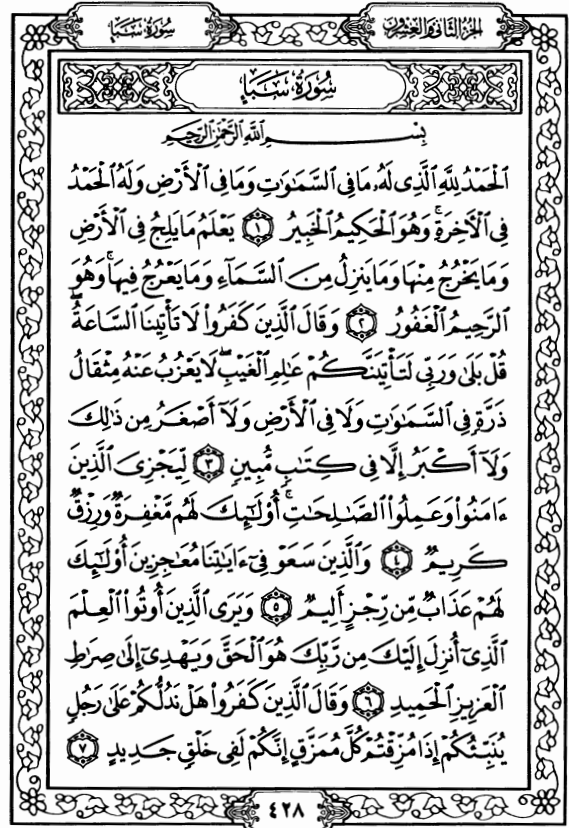 الجزء الثاني والعشرون
سُورَةُ سَبَإٍ
سُورَةُ سَبَإٍ
بِسْمِ اللَّهِ الرَّحْمَٰنِ الرَّحِيمِ
ٱلْحَمْدُ لِلَّهِ ٱلَّذِى لَهُۥ مَا فِى ٱلسَّمَٰوَٰتِ وَمَا فِى ٱلْأَرْضِ وَلَهُ ٱلْحَمْدُ
فِى ٱلْأَخِرَةِ ۚ وَهُوَ ٱلْحَكِيمُ ٱلْخَبِيرُ ١ يَعْلَمُ مَا يَلِجُ فِى ٱلْأَرْضِ
وَمَا يَخْرُجُ مِنْهَا وَمَا يَنزِلُ مِنَ ٱلسَّمَآءِ وَمَا يَعْرُجُ فِيهَا ۚ وَهُوَ
ٱلرَّحِيمُ ٱلْغَفُورُ ٢ وَقَالَ ٱلَّذِينَ كَفَرُوا۟ لَا تَأْتِينَا ٱلسَّاعَةُ ۖ
قُلْ بَلَىٰ وَرَبِّى لَتَأْتِيَنَّكُمْ عَٰلِمِ ٱلْغَيْبِ ۖ لَا يَعْزُبُ عَنْهُ مِثْقَالُ
ذَرَّةٍ فِى ٱلسَّمَٰوَٰتِ وَلَا فِى ٱلْأَرْضِ وَلَآ أَصْغَرُ مِن ذَٰلِكَ
وَلَآ أَكْبَرُ إِلَّا فِى كِتَٰبٍ مُّبِينٍ ٣ لِّيَجْزِىَ ٱلَّذِينَ
ءَامَنُوا۟ وَعَمِلُوا۟ ٱلصَّٰلِحَٰتِ ۚ أُو۟لَٰٓئِكَ لَهُم مَّغْفِرَةٌ وَرِزْقٌ
كَرِيمٌ ٤ وَٱلَّذِينَ سَعَوْ فِىٓ ءَايَٰتِنَا مُعَٰجِزِينَ أُو۟لَٰٓئِكَ
لَهُمْ عَذَابٌ مِّن رِّجْزٍ أَلِيمٌ ٥ وَيَرَى ٱلَّذِينَ أُوتُوا۟ ٱلْعِلْمَ
ٱلَّذِىٓ أُنزِلَ إِلَيْكَ مِن رَّبِّكَ هُوَ ٱلْحَقَّ وَيَهْدِىٓ إِلَىٰ صِرَٰطِ
ٱلْعَزِيزِ ٱلْحَمِيدِ ٦ وَقَالَ ٱلَّذِينَ كَفَرُوا۟ هَلْ نَدُلُّكُمْ عَلَىٰ رَجُلٍ
يُنَبِّئُكُمْ إِذَا مُزِّقْتُمْ كُلَّ مُمَزَّقٍ إِنَّكُمْ لَفِى خَلْقٍ جَدِيدٍ ٧
٤٢٨